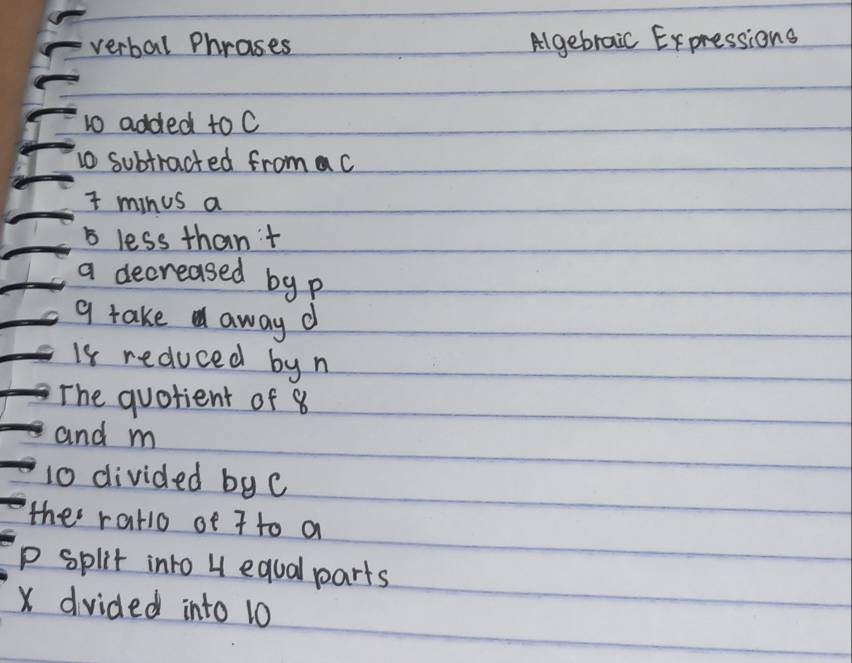 verbal Phrases Algebraic Expressions
10 added to C
10 subtracted from c
7 minus a
5 less than t
9 decreased by p
9 take away d
18 reduced by n
The quotient of 8
and m
10 divided by c
the ratio of 7 to a
p split into 4 equal parts
X dvided into 10